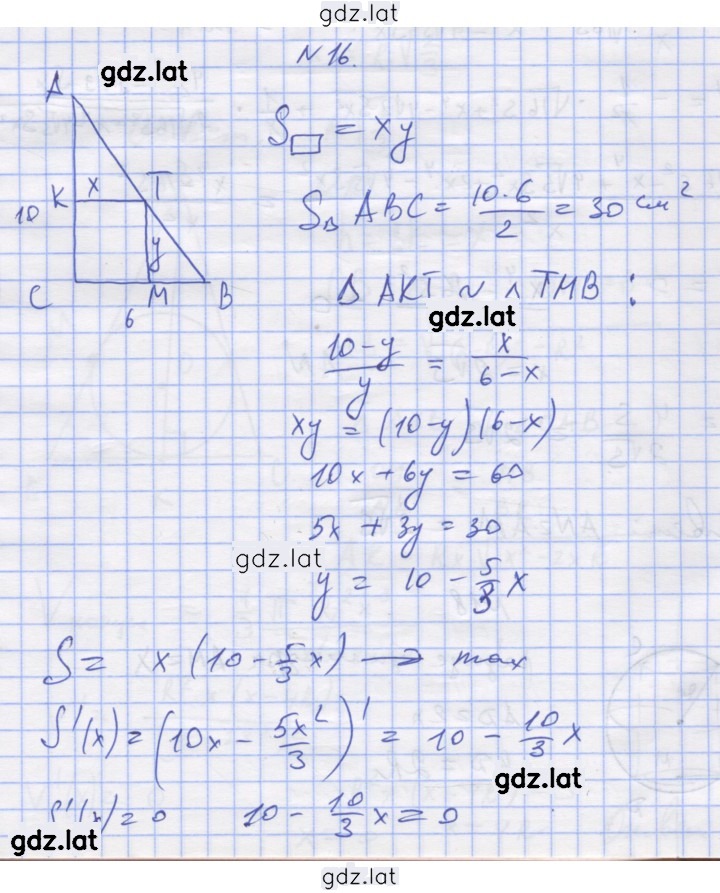 gdz.lat
N 16.
gdz.lat
A
S▭ = xy
K x T
10
y
SΔ ABC = 10·6/2 = 30 см²
C M B
6
Δ AKT ~ Δ TMB :
gdz.lat
(10-y)/y = x/(6-x)
xy = (10-y)(6-x)
10x + 6y = 60
5x + 3y = 30
gdz.lat
y = 10 - 5/3 x
S = x (10 - 5/3 x) → max
S'(x) = (10x - 5x²/3)' = 10 - 10/3 x
gdz.lat
S'(x) = 0 10 - 10/3 x = 0
gdz.lat
gdz.lat